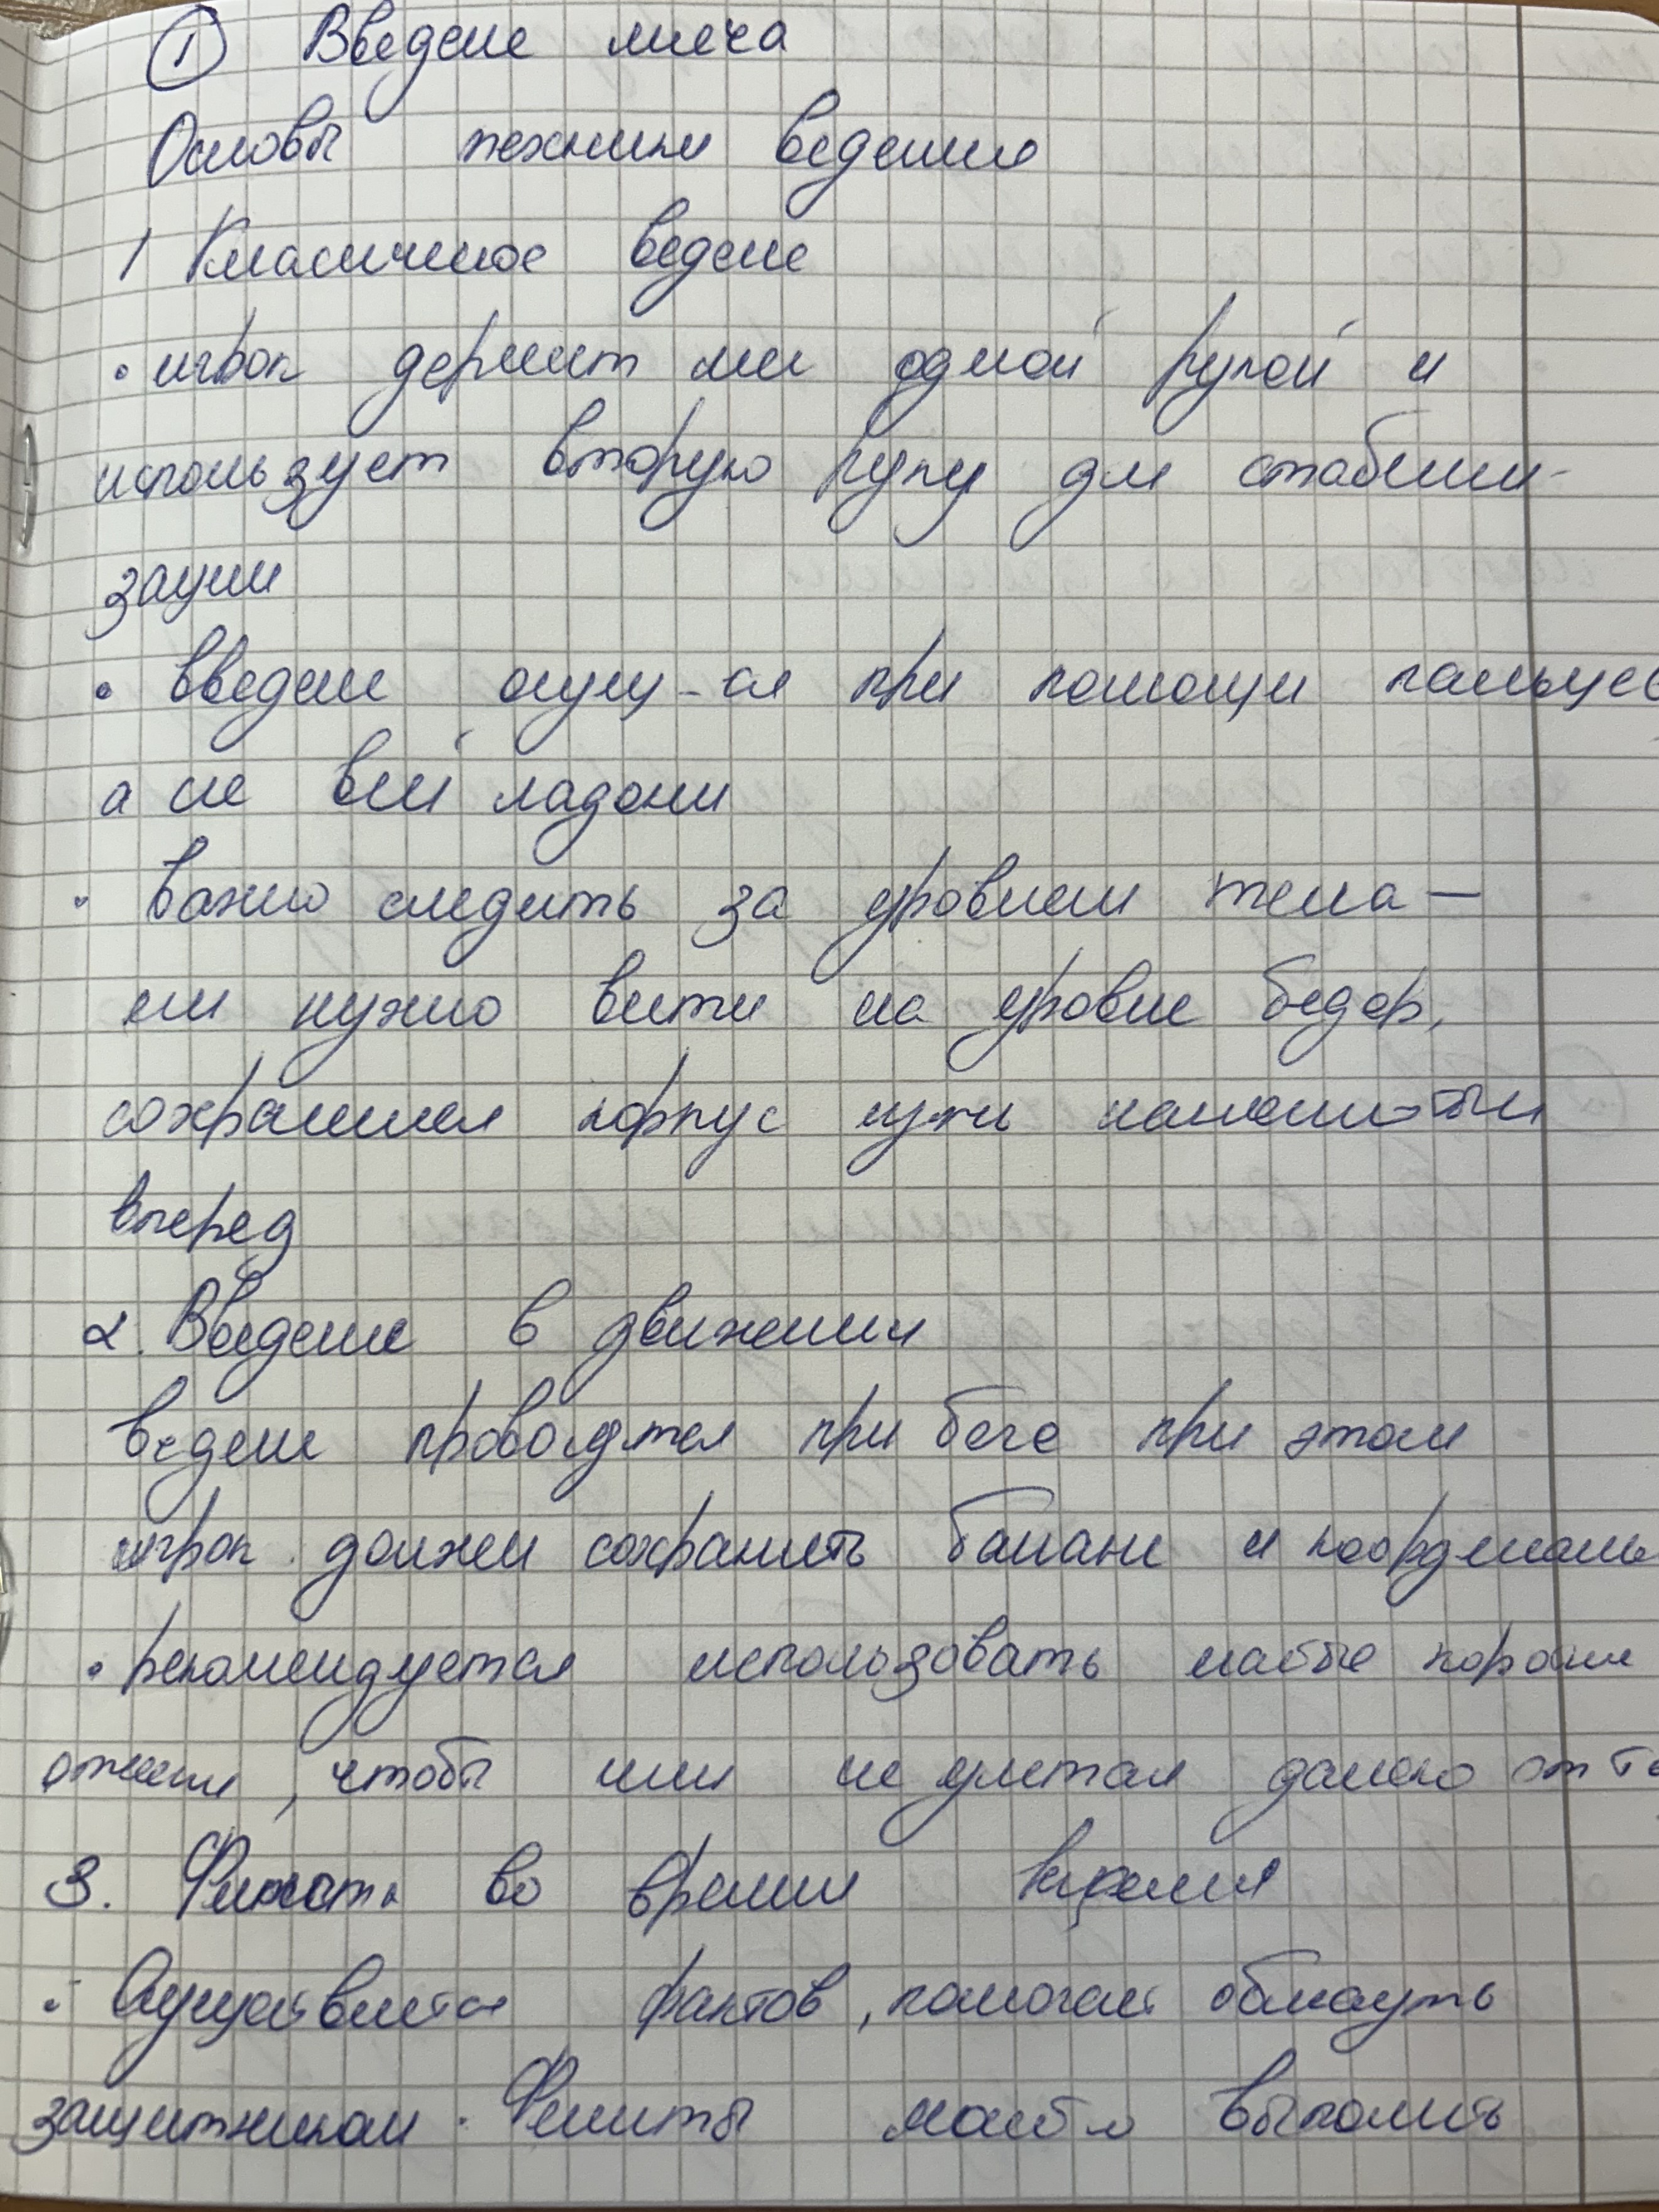 ① Введение мяча
Основы техники ведения
1 Класичное ведение
• игрок держит мяч одной рукой и
использует вторую руку для стабили-
зации
• введение осущ-ся при помощи пальцев
а не всей ладони
• важно следить за уровнем тела —
мяч нужно вести на уровне бедер,
сохраняя корпус чуть наклонётым
вперед
2. Введение в движении
ведение проводятся при беге при этом
игрок должен сохранить баланс и
• рекомендуется использовать короткие
, чтобы мяч не улетал далеко от
3. Финты во время
• Осуществляется фактов, помогает обмануть
защитником. Финты выполнить